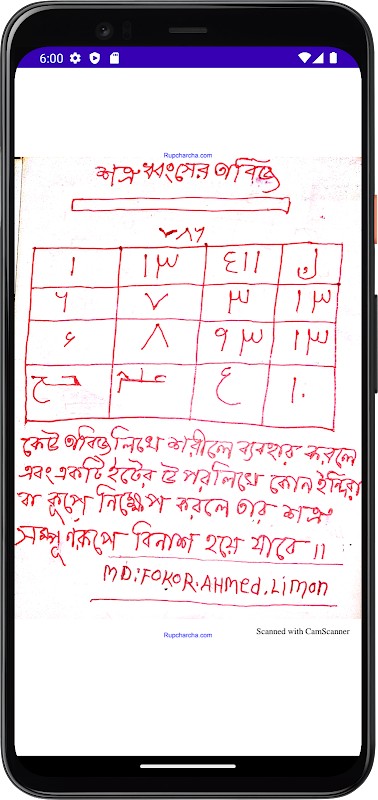 6:00
Rupcharcha.com
শত্রু ধ্বংসের তাবিজ
٧٨٦
١ ١٣ ١١٤ ل
٧ ٣ ١٣
٨ ٩٣ ١٣
ع ١٠
কেউ তাবিজ লিখে শরীলে ব্যবহার করলে
এবং একটি ইটের উপর লিখে কোন ইন্দিরা
বা কূপে নিক্ষেপ করলে তার শত্রু
সম্পূর্ণরূপে বিনাশ হয়ে যাবে ॥
MD:FOKOR.AHMed.Limon
Scanned with CamScanner
Rupcharcha.com